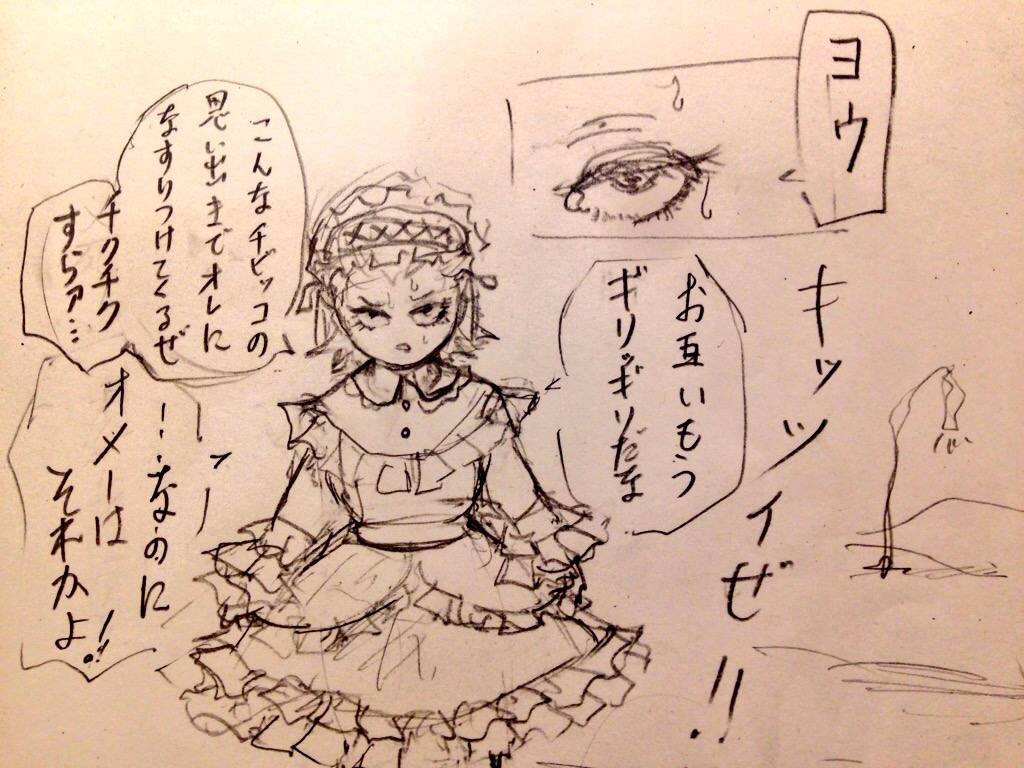 ヨウ
お互いもう
ギリギリだな
キッツイぜ!!
こんなチビッコの
思い出までオレに
なすりつけてくるぜ
チクチク
すらァ…
……なのに
オメーは
それかよ!!